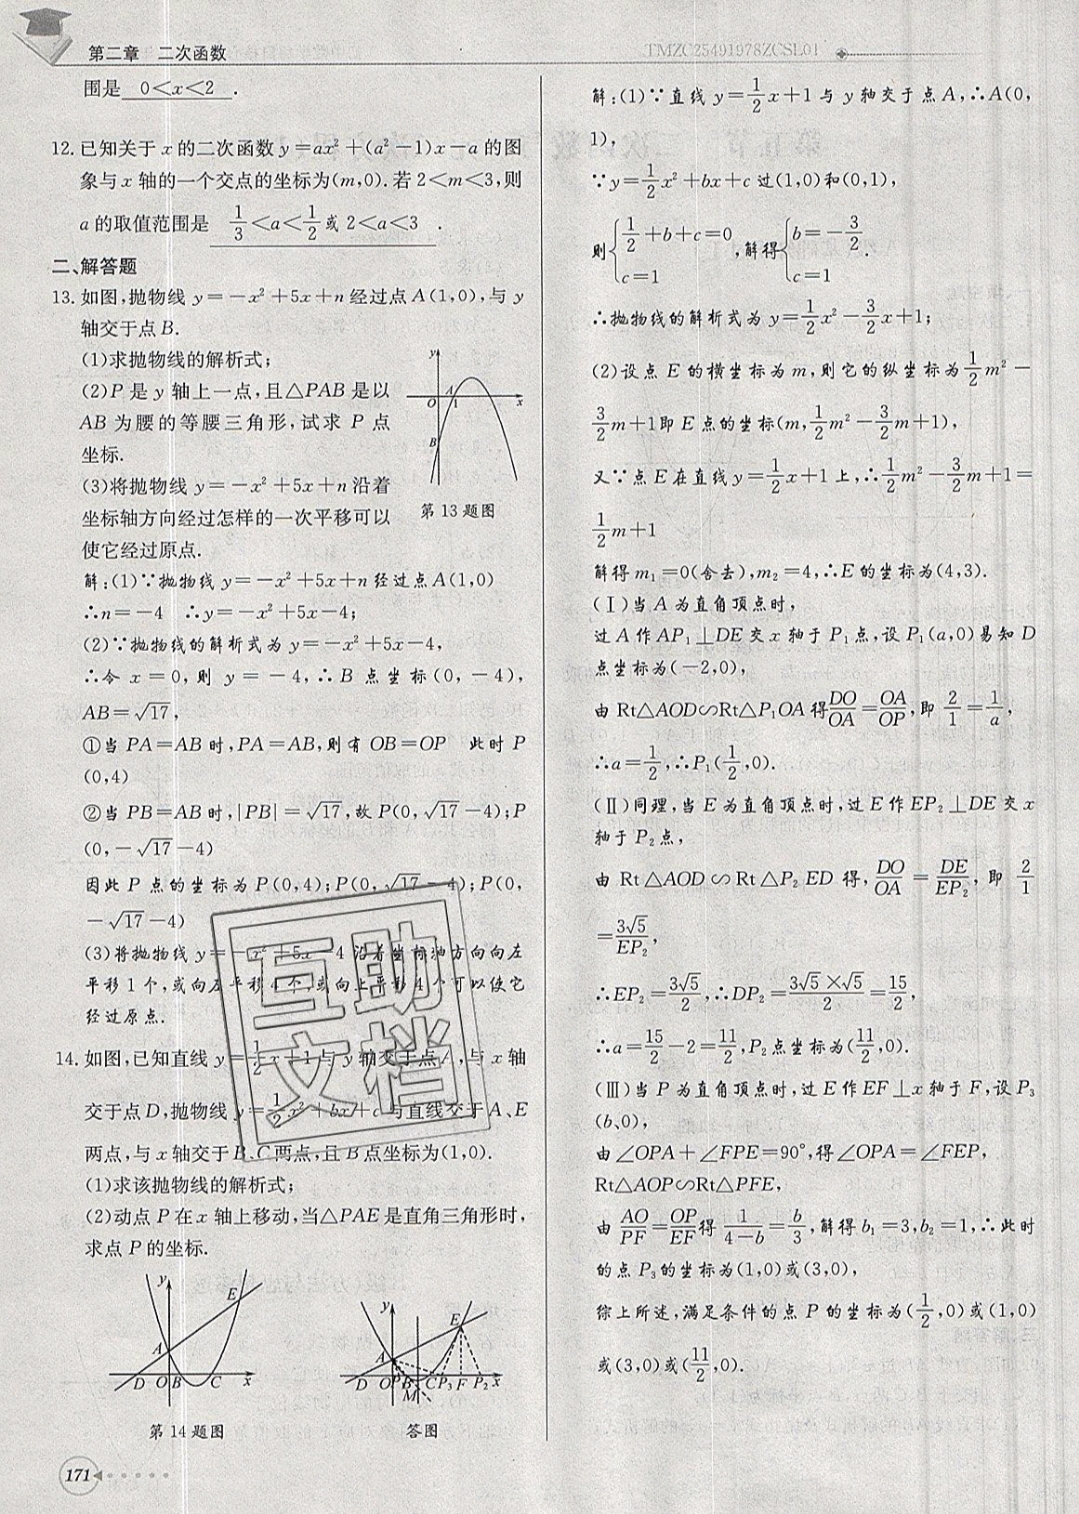 第二章 二次函数
TMZC25491978ZCSL01
围是 0<x<2 .
12.已知关于x的二次函数y=ax²+(a²-1)x-a的图
象与x轴的一个交点的坐标为(m,0).若2<m<3,则
a的取值范围是 1/3<a<1/2或2<a<3 .
二、解答题
13.如图,抛物线y=-x²+5x+n经过点A(1,0),与y
轴交于点B.
(1)求抛物线的解析式;
(2)P是y轴上一点,且△PAB是以
AB为腰的等腰三角形,试求P点
坐标.
(3)将抛物线y=-x²+5x+n沿着
坐标轴方向经过怎样的一次平移可以
使它经过原点.
y
O
A
1
x
B
第13题图
解:(1)∵抛物线y=-x²+5x+n经过点A(1,0)
∴n=-4 ∴y=-x²+5x-4;
(2)∵抛物线的解析式为y=-x²+5x-4,
∴令x=0,则y=-4,∴B点坐标(0,-4),
AB=√17,
①当PA=AB时,PA=AB,则有OB=OP 此时P
(0,4)
②当PB=AB时,|PB|=√17,故P(0,√17-4);P
(0,-√17-4)
因此P点的坐标为P(0,4);P(0,√17-4);P(0,
-√17-4)
(3)将抛物线y=-x²+5x-4沿着坐标轴方向向左
平移1个,或向左平移4个,或向上平移4个可以使它
经过原点.
14.如图,已知直线y=1/2x+1与y轴交于点A,与x轴
交于点D,抛物线y=1/2x²+bx+c与直线交于A、E
两点,与x轴交于B、C两点,且B点坐标为(1,0).
(1)求该抛物线的解析式;
(2)动点P在x轴上移动,当△PAE是直角三角形时,
求点P的坐标.
y
E
A
D O B C x
第14题图
y
E
A
D O P₁ B C P₃ F P₂ x
M
答图
171
解:(1)∵直线y=1/2x+1与y轴交于点A,∴A(0,
1),
∵y=1/2x²+bx+c过(1,0)和(0,1),
则{1/2+b+c=0 c=1,解得{b=-3/2 c=1.
∴抛物线的解析式为y=1/2x²-3/2x+1;
(2)设点E的横坐标为m,则它的纵坐标为1/2m²-
3/2m+1即E点的坐标(m,1/2m²-3/2m+1),
又∵点E在直线y=1/2x+1上,∴1/2m²-3/2m+1=
1/2m+1
解得m₁=0(舍去),m₂=4,∴E的坐标为(4,3).
(Ⅰ)当A为直角顶点时,
过A作AP₁⊥DE交x轴于P₁点,设P₁(a,0)易知D
点坐标为(-2,0),
由Rt△AOD∽Rt△P₁OA得DO/OA=OA/OP,即2/1=1/a,
∴a=1/2,∴P₁(1/2,0).
(Ⅱ)同理,当E为直角顶点时,过E作EP₂⊥DE交x
轴于P₂点,
由Rt△AOD∽Rt△P₂ED得,DO/OA=DE/EP₂,即2/1
=3√5/EP₂,
∴EP₂=3√5/2,∴DP₂=3√5×√5/2=15/2,
∴a=15/2-2=11/2,P₂点坐标为(11/2,0).
(Ⅲ)当P为直角顶点时,过E作EF⊥x轴于F,设P₃
(b,0),
由∠OPA+∠FPE=90°,得∠OPA=∠FEP,
Rt△AOP∽Rt△PFE,
由AO/PF=OP/EF得1/4-b=b/3,解得b₁=3,b₂=1,∴此时
的点P₃的坐标为(1,0)或(3,0),
综上所述,满足条件的点P的坐标为(1/2,0)或(1,0)
或(3,0)或(11/2,0).
互助
文档